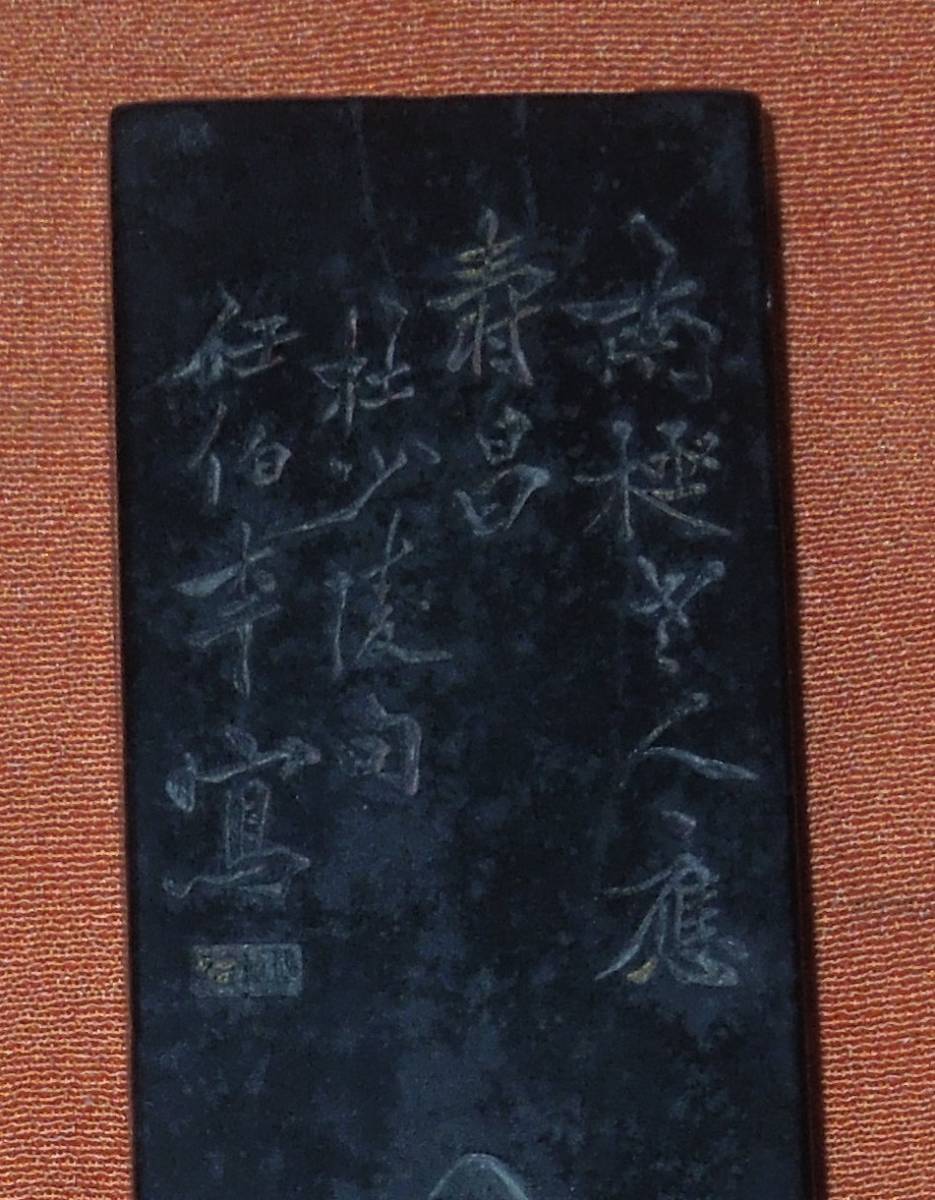 南極老人應
壽昌
杜少陵句
任伯年寫